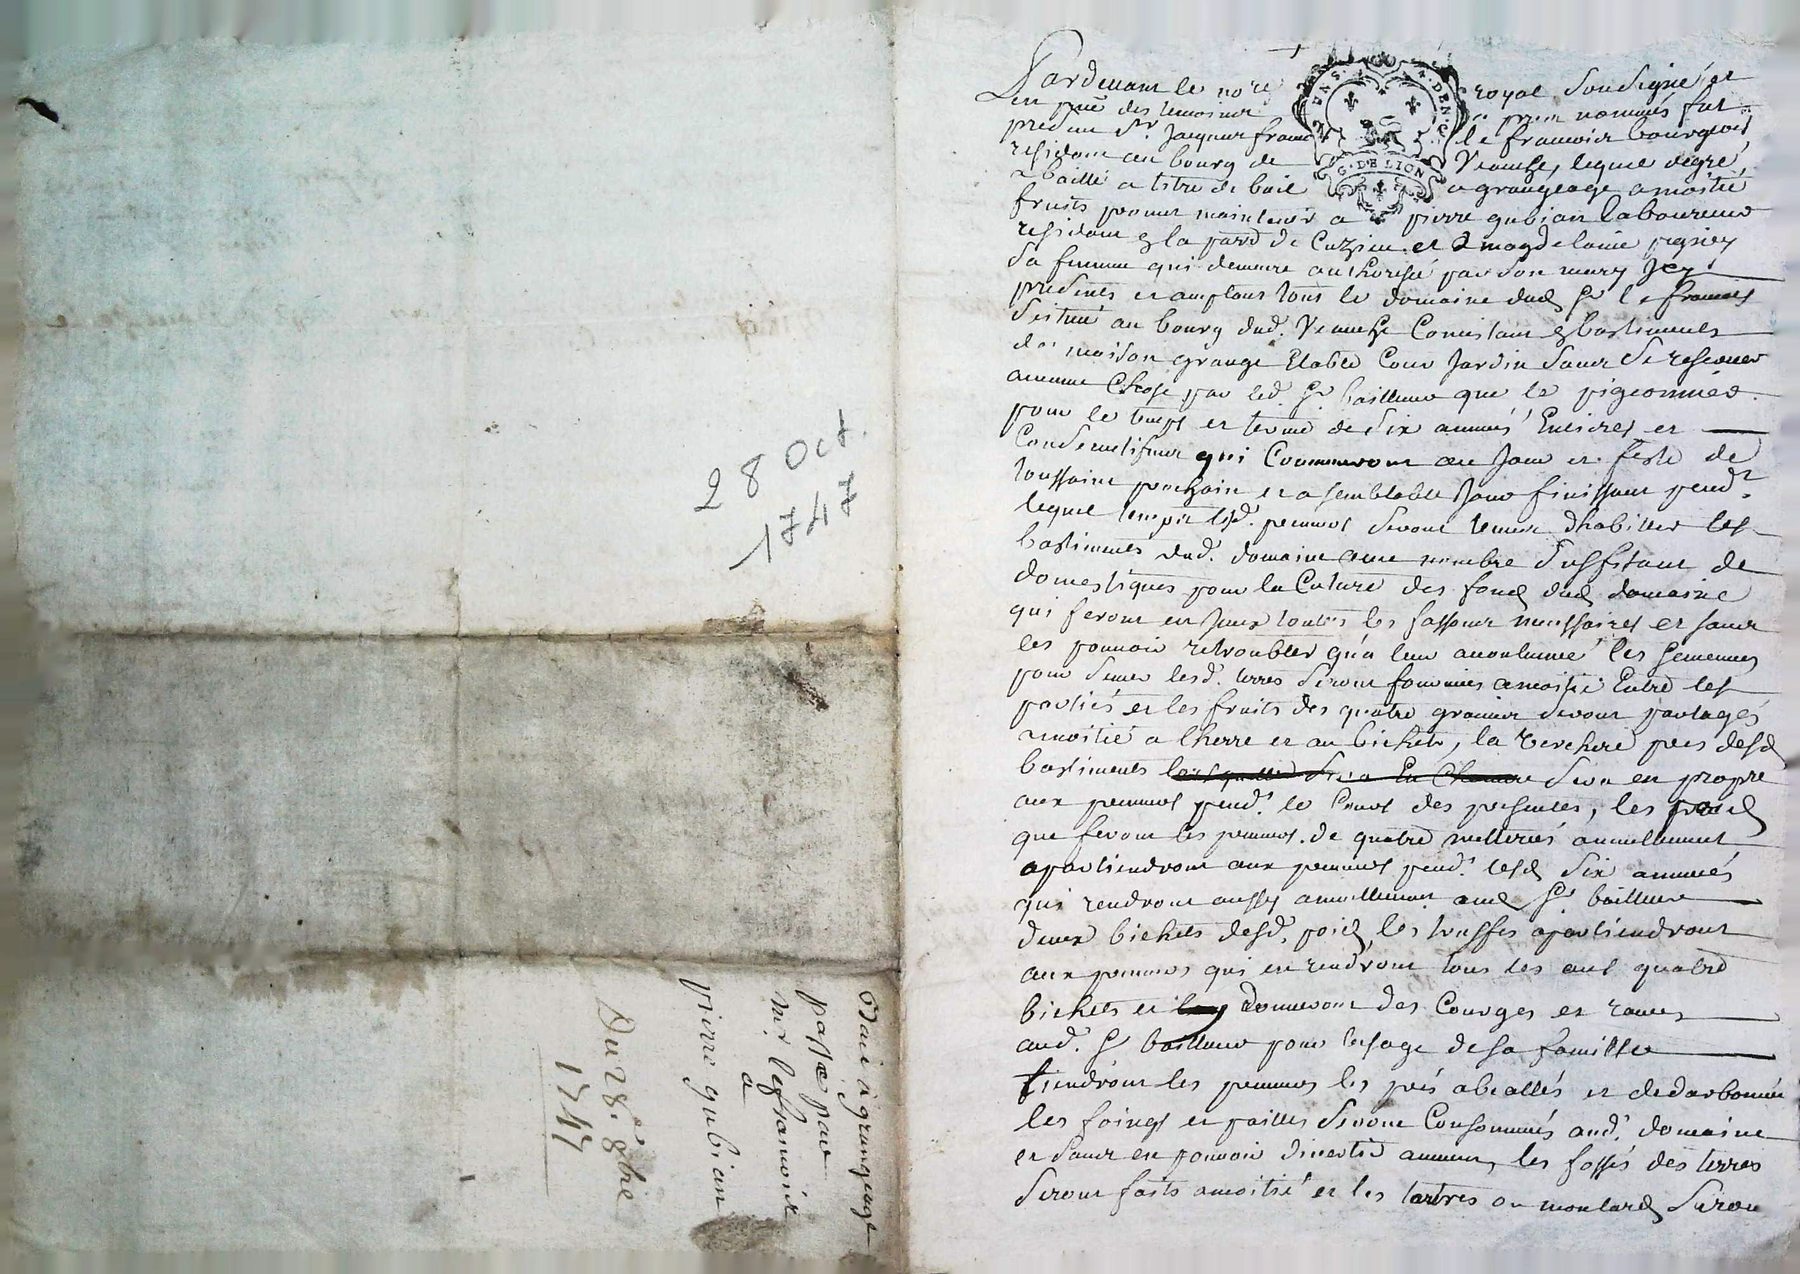 28 Oct.
1747
Bail à grangeage
passé par
Mr. lefranvois
a
pierre gubian
Du 28.e 8bre
1747
Pardevant le no.re royal soussigné et
en pnce des temoins nommés fut
present Sr. Jacques le bourgeois
residant au bourg de Veauche, lequel degré
a baillé a titre de bail a grangeage a moitié
fruits promet maintenir a pierre gubian laboureur
residant & la parr.e de Cuzieu et a magdelaine
sa femme qui demeure authorisée par son mary Icy
presents et acceptant tous le domaine dud Sr le
scitué au bourg dud. Veauche Consistant & bastiments
de maison grange Etable Cour Jardin sans se reserver
aucune Chose par led. Sr. bailleur que le pigeonnier
pour le temps et terme de six années Entieres et
Consecutives qui Commenceront au Jour et feste de
toussaint prochain et a semblable Jour finissant pend.t
lequel temps lesd. preneurs seront tenus dhabiter les
bastiments dud. domaine avec nombre suffisant de
domestiques pour la Culture des fonds dud domaine
qui feront en Iceux toutes les fassons necessaires et sans
les pouvoir retroubler qu'a leur accoutumée les semences
pour semer lesd. terres seront fournies a moitié Entre les
parties et les fruits des quatre grains seront partagés
a moitié a lherre et au bichet, la verchere pres desd
bastiments sera en propre
aux preneurs pend.t le Cours des presentes, les
que feront les preneurs de quatre metterées annuellement
apartiendront aux preneurs pend.t lesd six années
qui rendront aussy annuellement aud Sr bailleur
deux bichets desd. les truffes apartiendront
aux preneurs qui en rendront tous les ans quatre
bichets et donneront des Courges et raves
aud. Sr bailleur pour lusage de sa famille
tiendront les preneurs les prés abeallés et dedarbonnés
les foings et pailles seront Consommés aud. domaine
et sans en pouvoir divertir aucuns, les fossés des terres
seront faits a moitié et les tartres ou seron